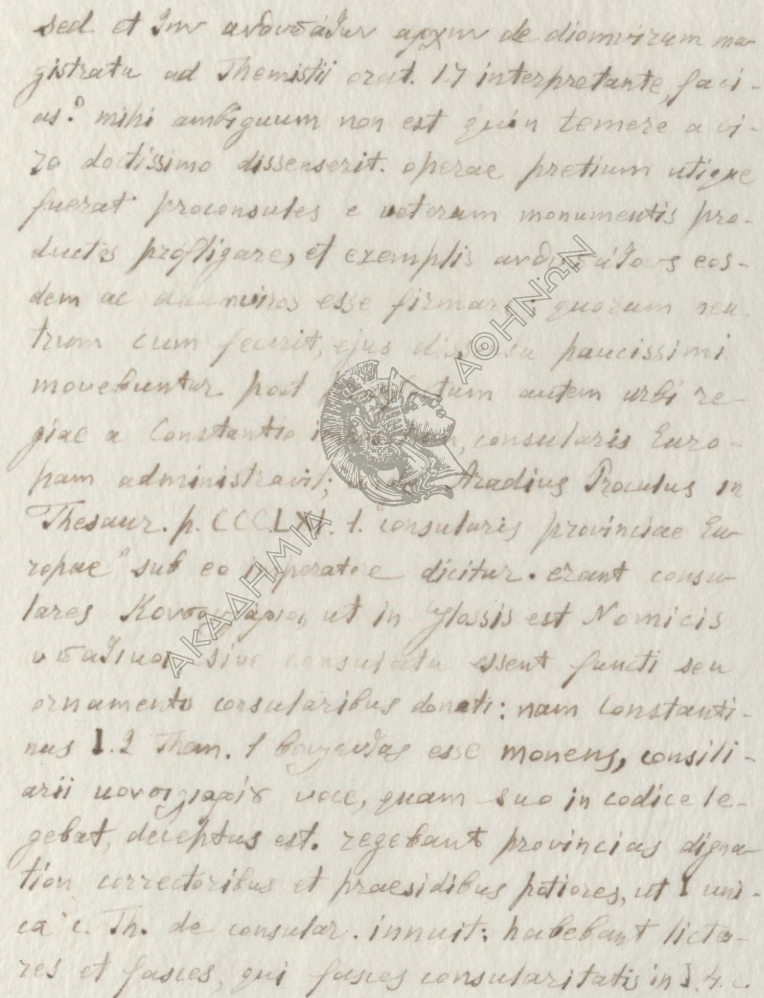 sed et την ανθυπάτων αρχην de diomvirum ma-
gistratu ad Themistii orat. 17 interpretante, faci-
as? mihi ambiguum non est quin temere a vi-
ro doctissimo dissenserit. operae pretium utique
fuerat proconsules e veterum monumentis pro-
ductos profligare, et exemplis ανθυπάτους eos-
dem ac duumviros esse firmare quorum neu
trum cum fecerit, ejus paucissimi
movebuntur post autem urbi re-
giae a Constantio consularis Euro-
pam administravit; Aradius Proculus in
Thesaur. p. CCCLXI. 1. "consularis provinciae Eu-
ropae" sub eo imperatore dicitur. erant consu-
lares ut in glossis est Nomicis
sive consulatu essent functi seu
ornamentis consularibus donati: nam Constanti-
nus 1. 2 Them. 1 esse monens, consili-
arii voce, quam suo in codice le-
gebat, deceptus est. regebant provincias digna
tion correctoribus et praesidibus potiores, ut l uni-
ca c. Th. de consular. innuit: habebant licto-
res et fasces, qui fasces consularitatis in l. 4. c.
ΑΚΑΔΗΜΙΑ ΑΘΗΝΩΝ